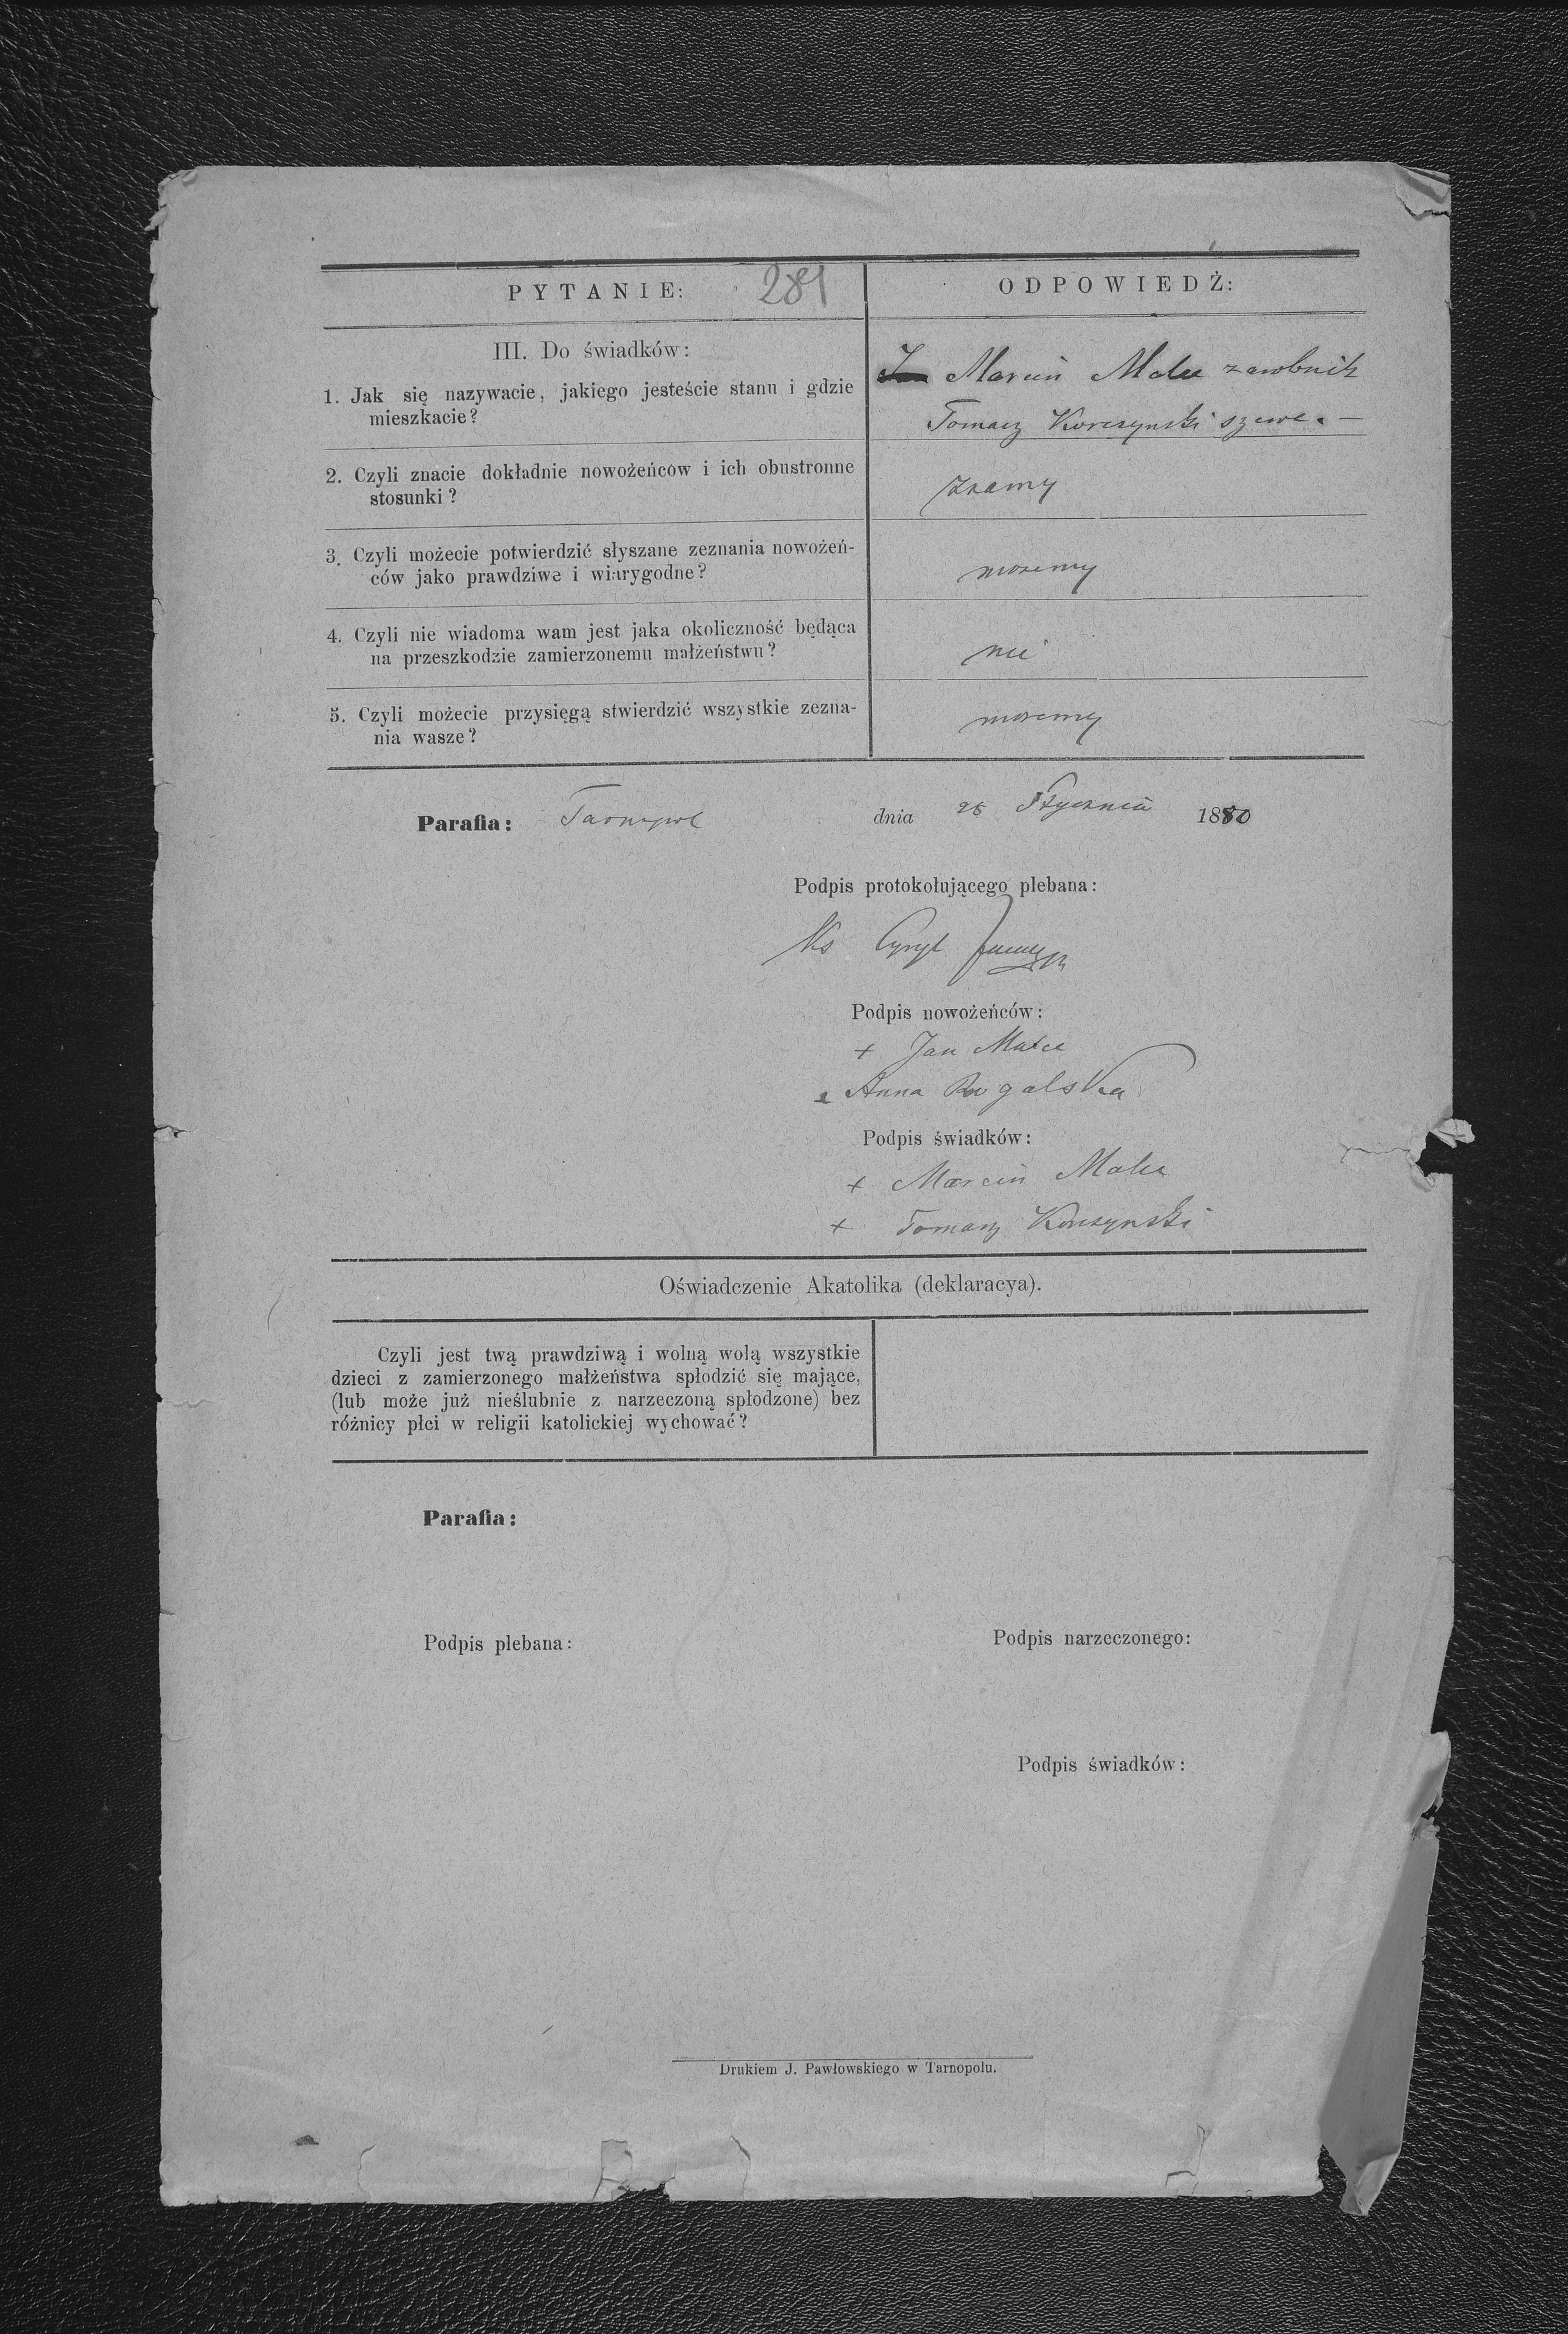 PYTANIE:
281
ODPOWIEDŹ:
III. Do świadków:
1. Jak się nazywacie, jakiego jesteście stanu i gdzie
mieszkacie?
Marcin Malec zarobnik
Tomasz Korczynski szewc. —
2. Czyli znacie dokładnie nowożeńców i ich obustronne
stosunki?
znamy
3. Czyli możecie potwierdzić słyszane zeznania nowożeń-
ców jako prawdziwe i wiarygodne?
mozemy
4. Czyli nie wiadoma wam jest jaka okoliczność będąca
na przeszkodzie zamierzonemu małżeństwu?
nie
5. Czyli możecie przysięgą stwierdzić wszystkie zezna-
nia wasze?
mozemy
Parafia: Tarnopol dnia Stycznia 1880
Podpis protokołującego plebana:
Ks Cyryl
Podpis nowożeńców:
+ Jan Malec
Anna Rogalska
Podpis świadków:
+ Marcin Malec
+ Tomasz Korczynski
Oświadczenie Akatolika (deklaracya).
Czyli jest twą prawdziwą i wolną wolą wszystkie
dzieci z zamierzonego małżeństwa spłodzić się mające,
(lub może już nieślubnie z narzeczoną spłodzone) bez
różnicy płci w religii katolickiej wychować?
Parafia:
Podpis plebana:
Podpis narzeczonego:
Podpis świadków:
Drukiem J. Pawłowskiego w Tarnopolu.